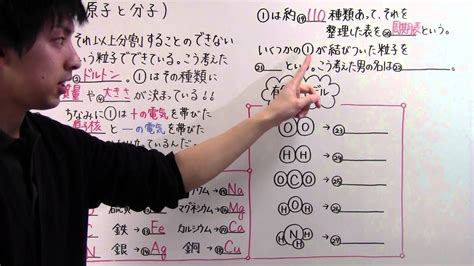 原子と分子)
それ以上分割」することのできない
いう粒子でできている。こう考えた
ドルトン。①はその種類に
質量や④大きさが決まっている!!
ちなみに①は+の電気を帯びた
原子核と−の電気を帯びた
ナトリウム→⑮Na
マグネシウム→Mg
鉄→Fe カルシウム→Ca
銀→Ag 銅→Cu
①は約⑲110種類あって、それを
整理した表を⑳周期表という。
いくつかの①が結びついた粒子を
㉑という。こう考えた男の名は㉒
モデル
OO→㉓
HH→㉔
OCO→㉕
HOH→㉖
HNH→㉗